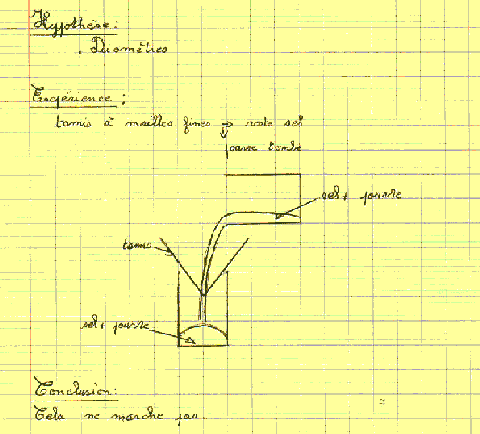 Hypothèse:
. Diamètres
Expérience:
tamis à mailles fines → reste sel
↓ poivre tombe
sel + poivre
tamis
sel + poivre
Conclusion:
Cela ne marche pas.